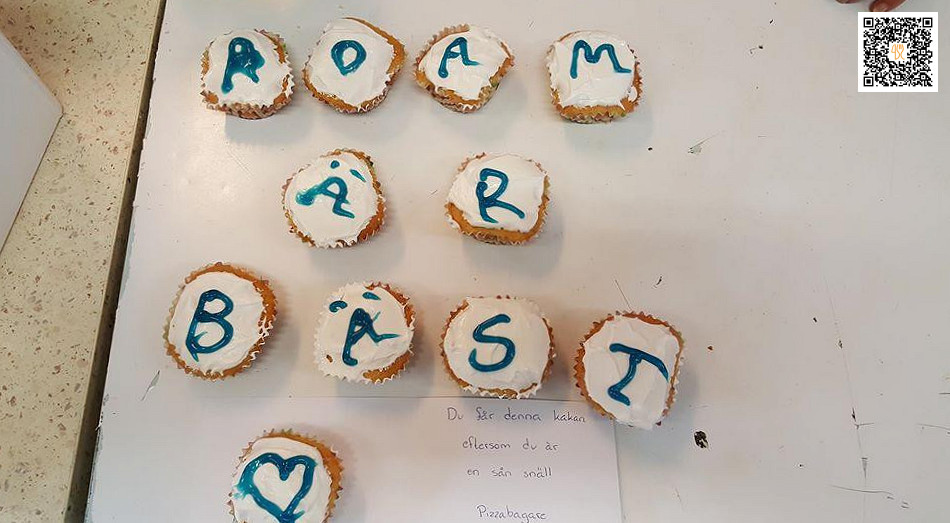 ADAM
ÄR
BÄST
Du får denna kakan
eftersom du är
en sån snäll
Pizzabagare